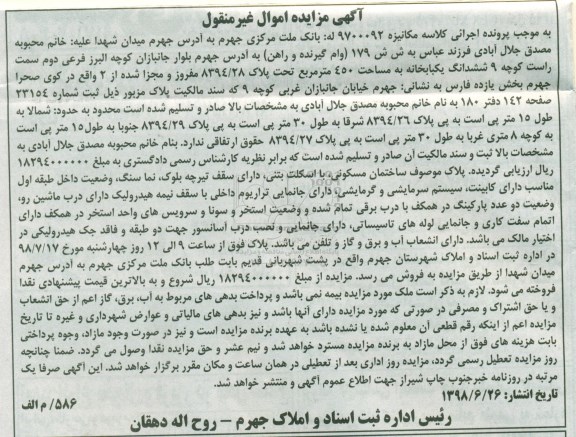 آگهی مزایده اموال غیرمنقول
به موجب پرونده اجرائی کلاسه مکانیزه ۹۷۰۰۰۹۲ له: بانک ملت مرکزی جهرم به آدرس جهرم میدان شهدا علیه: خانم محبوبه
مصدق جلال آبادی فرزند عباس به ش ش ۱۷۹ (وام گیرنده و راهن) به آدرس جهرم بلوار جانبازان کوچه البرز فرعی دوم سمت
راست کوچه ۹ ششدانگ یکبابخانه به مساحت ۴۵۰ مترمربع تحت پلاک ۸۳۹۴/۲۸ مفروز و مجزا شده از ۲ واقع در کوی صحرا
جهرم بخش یازده فارس به نشانی: جهرم خیابان جانبازان غربی کوچه ۹ که سند مالکیت پلاک مزبور ذیل ثبت شماره ۲۳۱۵۴
صفحه ۱۴۲ دفتر ۱۸۰ به نام خانم محبوبه مصدق جلال آبادی به مشخصات بالا صادر و تسلیم شده است محدود به حدود: شمالا به
طول ۱۵ متر پی است به پی پلاک ۸۳۹۴/۲۶ شرقا به طول ۳۰ متر پی است به پی پلاک ۸۳۹۴/۲۹ جنوبا به طول ۱۵ متر پی است
به کوچه ۸ متری غربا به طول ۳۰ متر پی است به پی پلاک ۸۳۹۴/۲۷ حقوق ارتفاقی ندارد. بنام خانم محبوبه مصدق جلال آبادی به
مشخصات بالا ثبت و سند مالکیت آن صادر و تسلیم شده است که برابر نظریه کارشناس رسمی دادگستری به مبلغ ۱۸۲۹۴۰۰۰۰۰۰
ریال ارزیابی گردیده. پلاک موصوف ساختمان مسکونی با اسکلت بتنی، دارای سقف تیرچه بلوک، نما سنگ، وضعیت داخل طبقه اول
مناسب دارای کابینت، سیستم سرمایشی و گرمایشی دارای جانمایی تراریوم داخلی با سقف نیمه هیدرولیک دارای درب ماشین رو،
وضعیت دو عدد پارکینگ در همکف با درب برقی تمام شده و وضعیت استخر و سونا و سرویس های واحد استخر در همکف دارای
اتمام سفت کاری و جانمایی لوله های تاسیساتی، دارای جانمایی و نصب درب آسانسور جهت دو طبقه و فاقد جک هیدرولیکی در
اختیار مالک می باشد. دارای انشعاب آب و برق و گاز و تلفن می باشد. پلاک فوق از ساعت ۹ الی ۱۲ روز چهارشنبه مورخ ۹۸/۷/۱۷
در اداره ثبت اسناد و املاک شهرستان جهرم واقع در پشت شهربانی قدیم بابت طلب بانک ملت مرکزی جهرم به آدرس جهرم
میدان شهدا از طریق مزایده به فروش می رسد. مزایده از مبلغ ۱۸۲۹۴۰۰۰۰۰۰ ریال شروع و به بالاترین قیمت پیشنهادی نقدا
فروخته می شود. لازم به ذکر است ملک مورد مزایده بیمه نمی باشد و پرداخت بدهی های مربوط به آب، برق، گاز اعم از حق انشعاب
و یا حق اشتراک و مصرفی در صورتی که مورد مزایده دارای آنها باشد و نیز بدهی های مالیاتی و عوارض شهرداری و غیره تا تاریخ
مزایده اعم از اینکه رقم قطعی آن معلوم شده یا نشده باشد به عهده برنده مزایده است و نیز در صورت وجود مازاد، وجوه پرداختی
بابت هزینه های فوق از محل مازاد به برنده مزایده مسترد خواهد شد و نیم عشر و حق مزایده نقدا وصول می گردد. ضمنا چنانچه
روز مزایده تعطیل رسمی گردد، مزایده روز اداری بعد از تعطیلی در همان ساعت و مکان مقرر برگزار خواهد شد. این آگهی صرفا یک
مرتبه در روزنامه خبرجنوب چاپ شیراز جهت اطلاع عموم آگهی و منتشر خواهد شد.
تاریخ انتشار: ۱۳۹۸/۶/۲۶
۵۸۶/ م الف
رئیس اداره ثبت اسناد و املاک جهرم – روح اله دهقان